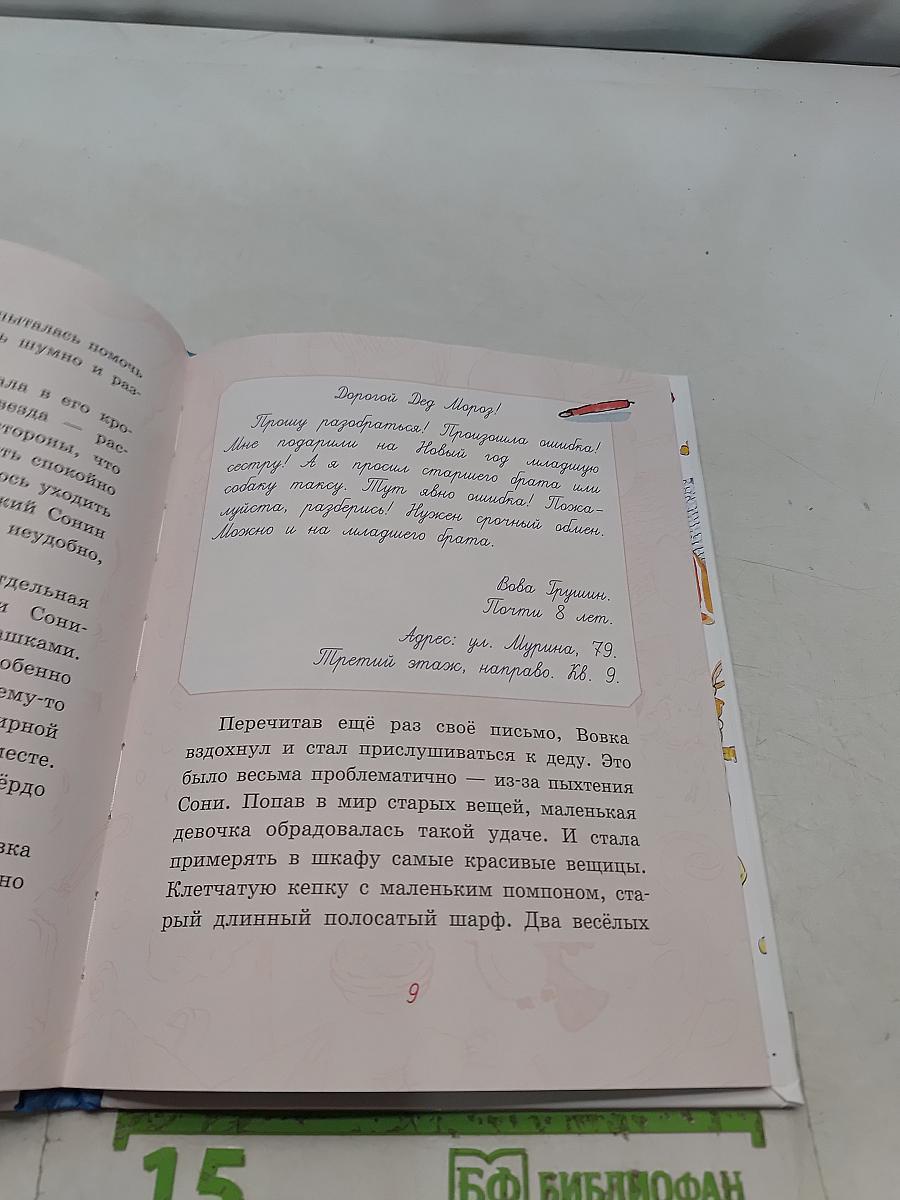 пыталась помочь
ь шумно и раз-
ала в его кро-
везда — рас-
стороны, что
ть спокойно
ось уходить
кий Сонин
неудобно,
тдельная
и Сони-
ашками.
собенно
ему-то
ирной
месте.
ёрдо
вка
но
Дорогой Дед Мороз!
Прошу разобраться! Произошла ошибка!
Мне подарили на Новый год младшую
сестру! А я просил старшего брата или
собаку таксу. Тут явно ошибка! Пожа-
луйста, разберись! Нужен срочный обмен.
Можно и на младшего брата.
Вова Грушин.
Почти 8 лет.
Адрес: ул. Мурина, 79.
Третий этаж, направо. Кв. 9.
Перечитав ещё раз своё письмо, Вовка
вздохнул и стал прислушиваться к деду. Это
было весьма проблематично — из-за пыхтения
Сони. Попав в мир старых вещей, маленькая
девочка обрадовалась такой удаче. И стала
примерять в шкафу самые красивые вещицы.
Клетчатую кепку с маленьким помпоном, ста-
рый длинный полосатый шарф. Два весёлых
9
15
БФ БИБЛИОФАН